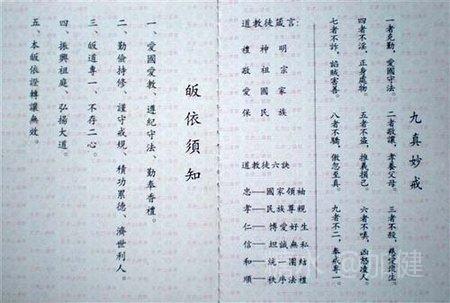 九真妙戒
一者克勤，愛國守法。 二者敬讓，孝養父母。 三者不殺，慈愛眾生。
四者不淫，正身處物。 五者不盜，推義損己。 六者不嗔，凶怒凌人。
七者不詐，諂賊害善。 八者不驕，傲忽至真。 九者不二，奉戒專一。
道教徒箴言:
禮神明
敬祖宗
愛國家
保民族
道教徒六訣
忠——國家領袖
孝——民族尊親
仁——博愛好生
信——坦誠無私
和——統一團結
順——秩序法
皈依須知
一、愛國愛教、遵紀守法、勤奉香禮。
二、勤儉持修、謹守戒規、積功累德、濟世利人。
三、皈道專一、不存二心。
四、振興祖庭、弘揚大道。
五、本皈依證轉讓無效。